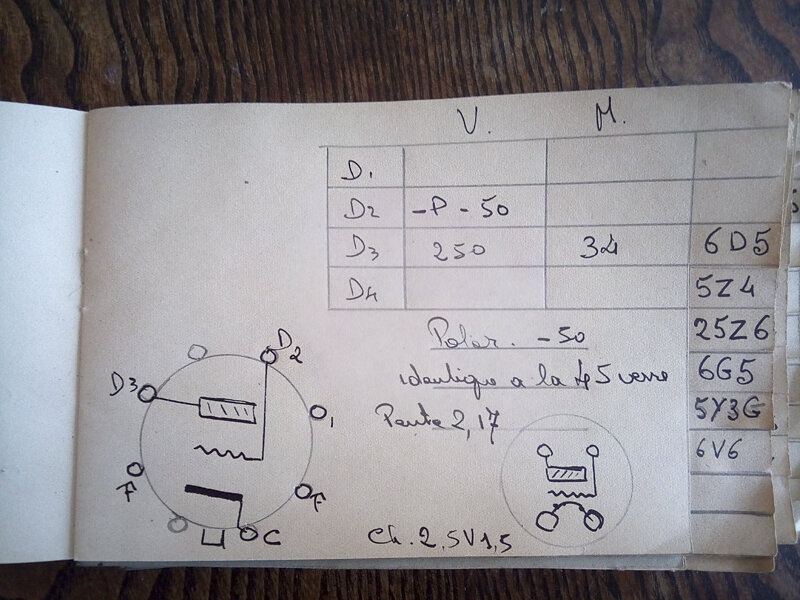 V. M.
D1
D2 -P - 50
D3 250 34 6D5
D4 5Z4
25Z6
6G5
5Y3G
6V6
Polar. -50
identique a la 45 verre
Pente 2,17
Ch. 2,5V1,5
D2
D3
1
F
F
C